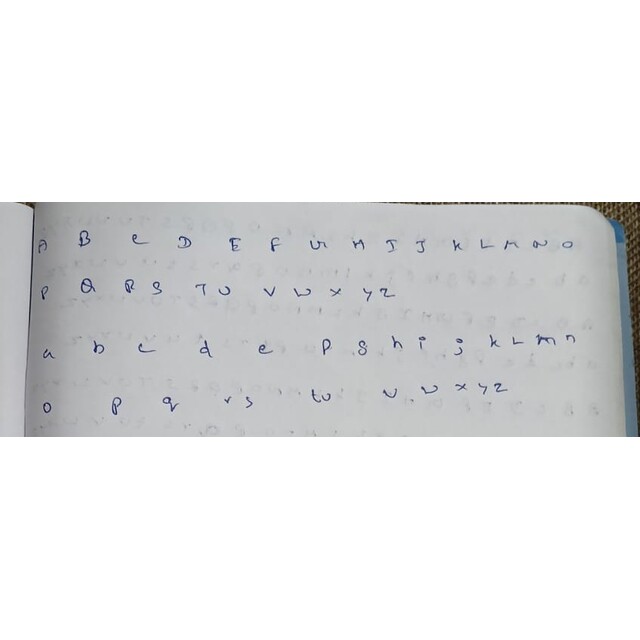 A B C D E F G H I J K L M N O
P Q R S T U V W X Y Z
a b c d e f g h i j k l m n
o p q r s t u v w x y z